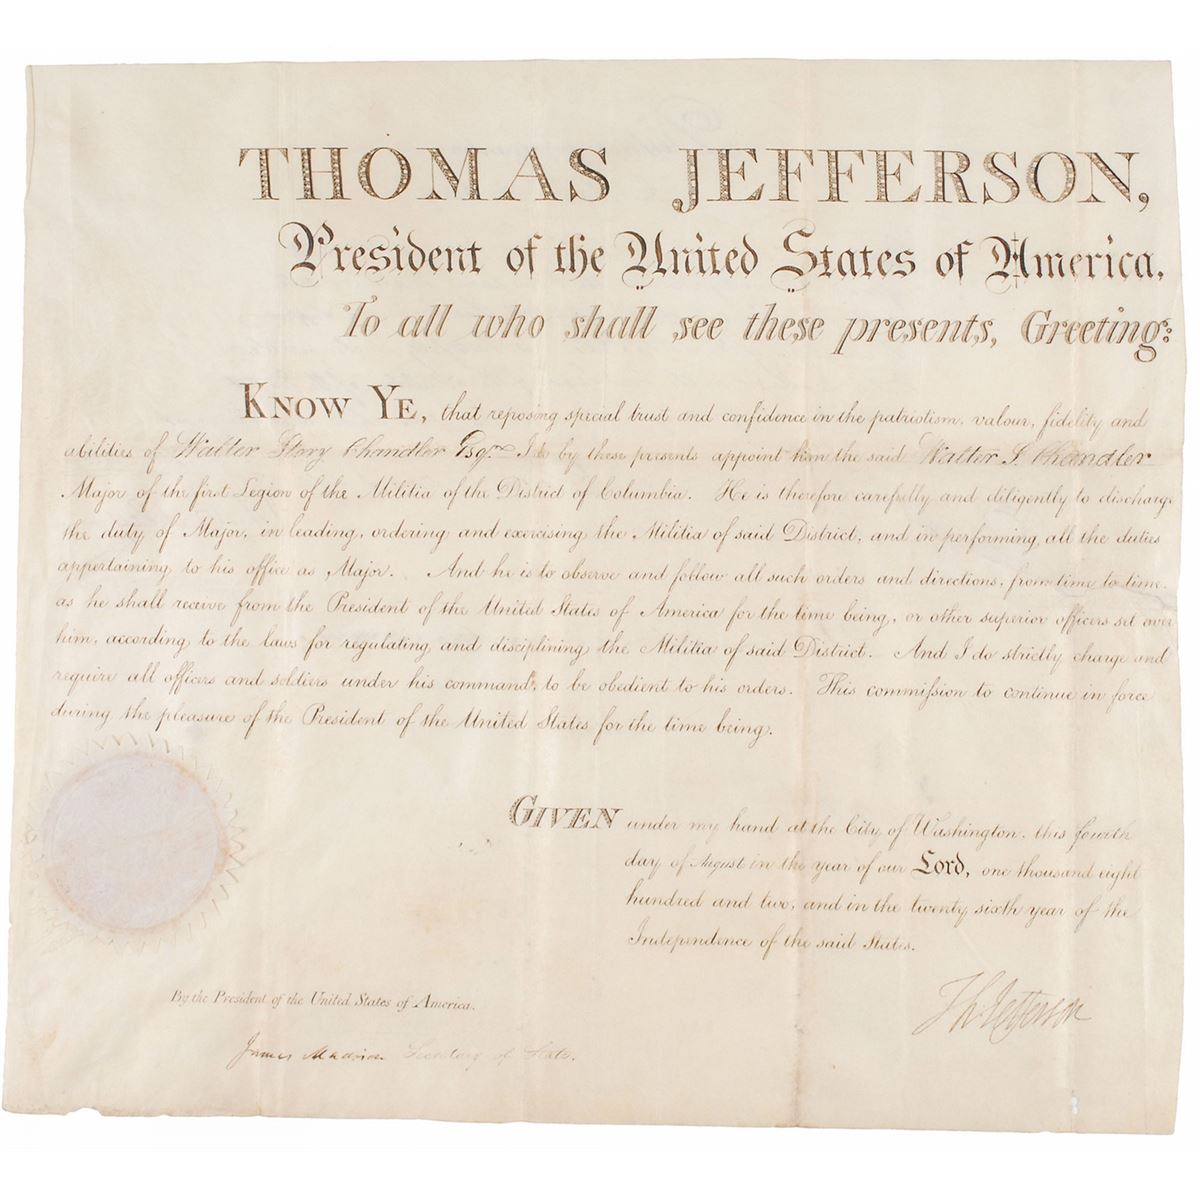 THOMAS JEFFERSON,
President of the United States of America,
To all who shall see these presents, Greeting:
KNOW YE, that reposing special trust and confidence in the patriotism, valour, fidelity and
abilities of Walter Story Chandler Esqr. I do by these presents appoint him the said Walter S. Chandler
Major of the first Legion of the Militia of the District of Columbia. He is therefore carefully and diligently to discharge
the duty of Major, in leading, ordering and exercising the Militia of said District, and in performing all the duties
appertaining to his office as Major. And he is to observe and follow all such orders and directions, from time to time,
as he shall receive from the President of the United States of America for the time being, or other superior officers set over
him, according to the laws for regulating and disciplining the Militia of said District. And I do strictly charge and
require all officers and soldiers under his command, to be obedient to his orders. This commission to continue in force
during the pleasure of the President of the United States for the time being.
GIVEN under my hand at the City of Washington, this fourth
day of August in the year of our Lord, one thousand eight
hundred and two, and in the twenty sixth year of the
Independence of the said States.
Th: Jefferson
By the President of the United States of America.
James Madison Secretary of State.